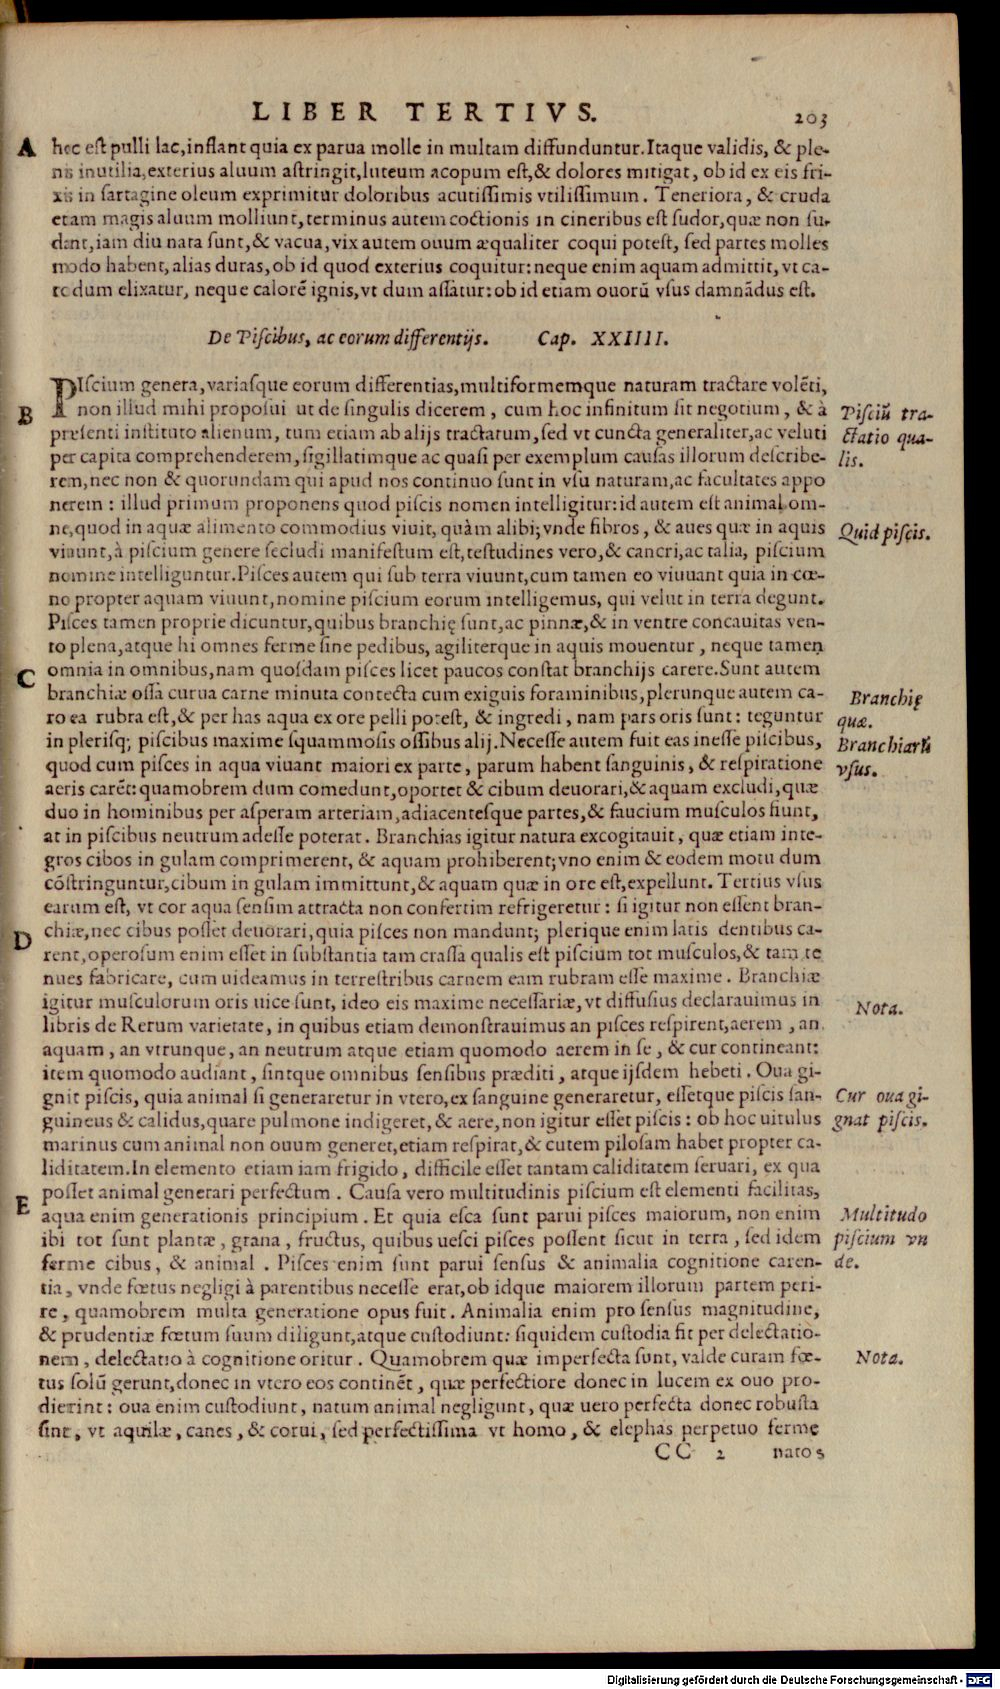 LIBER TERTIVS.
203
A
hoc est pulli lac, inflant quia ex parua molle in multam diffunduntur. Itaque validis, & ple-
nis inutilia, exterius aluum astringit, luteum acopum est, & dolores mitigat, ob id ex eis fri-
xis in sartagine oleum exprimitur doloribus acutissimis vtilissimum. Teneriora, & cruda
etam magis aluum molliunt, terminus autem coctionis in cineribus est sudor, quæ non su-
dant, iam diu nata sunt, & vacua, vix autem ouum æqualiter coqui potest, sed partes molles
modo habent, alias duras, ob id quod exterius coquitur: neque enim aquam admittit, vt ca-
te dum elixatur, neque calorẽ ignis, vt dum assatur: ob id etiam ouorũ vsus damnãdus est.
De Piscibus, ac eorum differentijs. Cap. XXIIII.
PIscium genera, variasque eorum differentias, multiformemque naturam tractare volẽti,
B
non illud mihi proposui ut de singulis dicerem, cum hoc infinitum sit negotium, & à
Pisciũ tra-
presenti instituto alienum, tum etiam ab alijs tractatum, sed vt cuncta generaliter, ac veluti
ctatio qua-
per capita comprehenderem, sigillatimque ac quasi per exemplum causas illorum describe-
lis.
rem, nec non & quorundam qui apud nos continuo sunt in vsu naturam, ac facultates appo
nerem: illud primum proponens quod piscis nomen intelligitur: id autem est animal om-
ne, quod in aquæ alimento commodius viuit, quàm alibi; vnde fibros, & aues quæ in aquis
Quid piscis.
viuunt, à piscium genere secludi manifestum est, testudines vero, & cancri, ac talia, piscium
nomine intelliguntur. Pisces autem qui sub terra viuunt, cum tamen eo viuuant quia in cœ-
no propter aquam viuunt, nomine piscium eorum intelligemus, qui velut in terra degunt.
Pisces tamen proprie dicuntur, quibus branchię sunt, ac pinnæ, & in ventre concauitas ven-
to plena, atque hi omnes ferme sine pedibus, agiliterque in aquis mouentur, neque tamen
C
omnia in omnibus, nam quosdam pisces licet paucos constat branchijs carere. Sunt autem
branchiæ ossa curua carne minuta contecta cum exiguis foraminibus, plerunque autem ca-
Branchię
ro ea rubra est, & per has aqua ex ore pelli potest, & ingredi, nam pars oris sunt: teguntur
quæ.
in plerisq; piscibus maxime squammosis ossibus alij. Necesse autem fuit eas inesse piscibus,
Branchiarũ
quod cum pisces in aqua viuant maiori ex parte, parum habent sanguinis, & respiratione
vsus.
aeris carẽt: quamobrem dum comedunt, oportet & cibum deuorari, & aquam excludi, quæ
duo in hominibus per asperam arteriam, adiacentesque partes, & faucium musculos fiunt,
at in piscibus neutrum adesse poterat. Branchias igitur natura excogitauit, quæ etiam inte-
gros cibos in gulam comprimerent, & aquam prohiberent; vno enim & eodem motu dum
cõstringuntur, cibum in gulam immittunt, & aquam quæ in ore est, expellunt. Tertius vsus
earum est, vt cor aqua sensim attracta non confertim refrigeretur: si igitur non essent bran-
D
chiæ, nec cibus posset deuorari, quia pisces non mandunt; plerique enim latis dentibus ca-
rent, operosum enim esset in substantia tam crassa qualis est piscium tot musculos, & tam te
nues fabricare, cum uideamus in terrestribus carnem eam rubram esse maxime. Branchiæ
igitur musculorum oris uice sunt, ideo eis maxime necessariæ, vt diffusius declarauimus in
Nota.
libris de Rerum varietate, in quibus etiam demonstrauimus an pisces respirent, aerem, an
aquam, an vtrunque, an neutrum atque etiam quomodo aerem in se, & cur contineant:
item quomodo audiant, sintque omnibus sensibus præditi, atque ijsdem hebeti. Oua gi-
gnit piscis, quia animal si generaretur in vtero, ex sanguine generaretur, essetque piscis san-
Cur oua gi-
guineus & calidus, quare pulmone indigeret, & aere, non igitur esset piscis: ob hoc uitulus
gnat piscis.
marinus cum animal non ouum generet, etiam respirat, & cutem pilosam habet propter ca-
liditatem. In elemento etiam iam frigido, difficile esset tantam caliditatem seruari, ex qua
E
posset animal generari perfectum. Causa vero multitudinis piscium est elementi facilitas,
aqua enim generationis principium. Et quia esca sunt parui pisces maiorum, non enim
Multitudo
ibi tot sunt plantæ, grana, fructus, quibus uesci pisces possent sicut in terra, sed idem
piscium vn
ferme cibus, & animal. Pisces enim sunt parui sensus & animalia cognitione caren-
de.
tia, vnde fœtus negligi à parentibus necesse erat, ob idque maiorem illorum partem peri-
re, quamobrem multa generatione opus fuit. Animalia enim pro sensus magnitudine,
& prudentiæ fœtum suum diligunt, atque custodiunt: siquidem custodia fit per delectatio-
nem, delectatio à cognitione oritur. Quamobrem quæ imperfecta sunt, valde curam fœ-
Nota.
tus solũ gerunt, donec in vtero eos continẽt, quæ perfectiore donec in lucem ex ouo pro-
dierint: oua enim custodiunt, natum animal negligunt, quæ uero perfecta donec robusta
sint, vt aquilæ, canes, & corui, sed perfectissima vt homo, & elephas perpetuo ferme
CC 2
natos
Digitalisierung gefördert durch die Deutsche Forschungsgemeinschaft - DFG